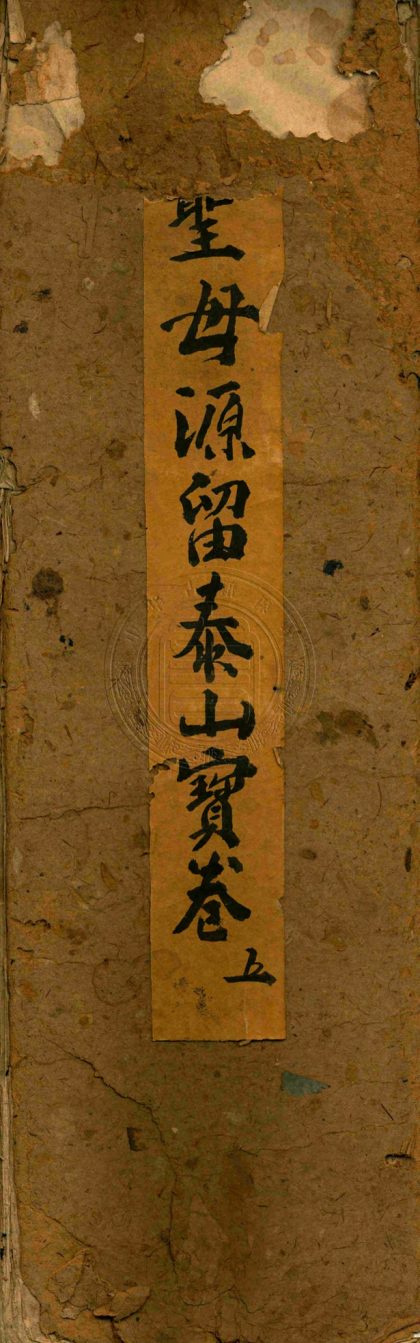 聖母源留泰山寶卷
五